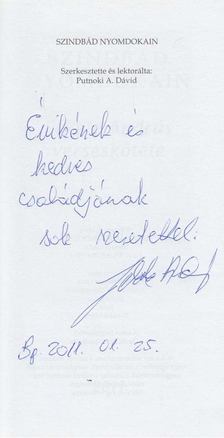 SZINDBÁD NYOMDOKAIN
Szerkesztette és lektorálta:
Putnoki A. Dávid
Évikének és
kedves
családjának
sok szeretettel:
Bp. 2011. 01. 25.